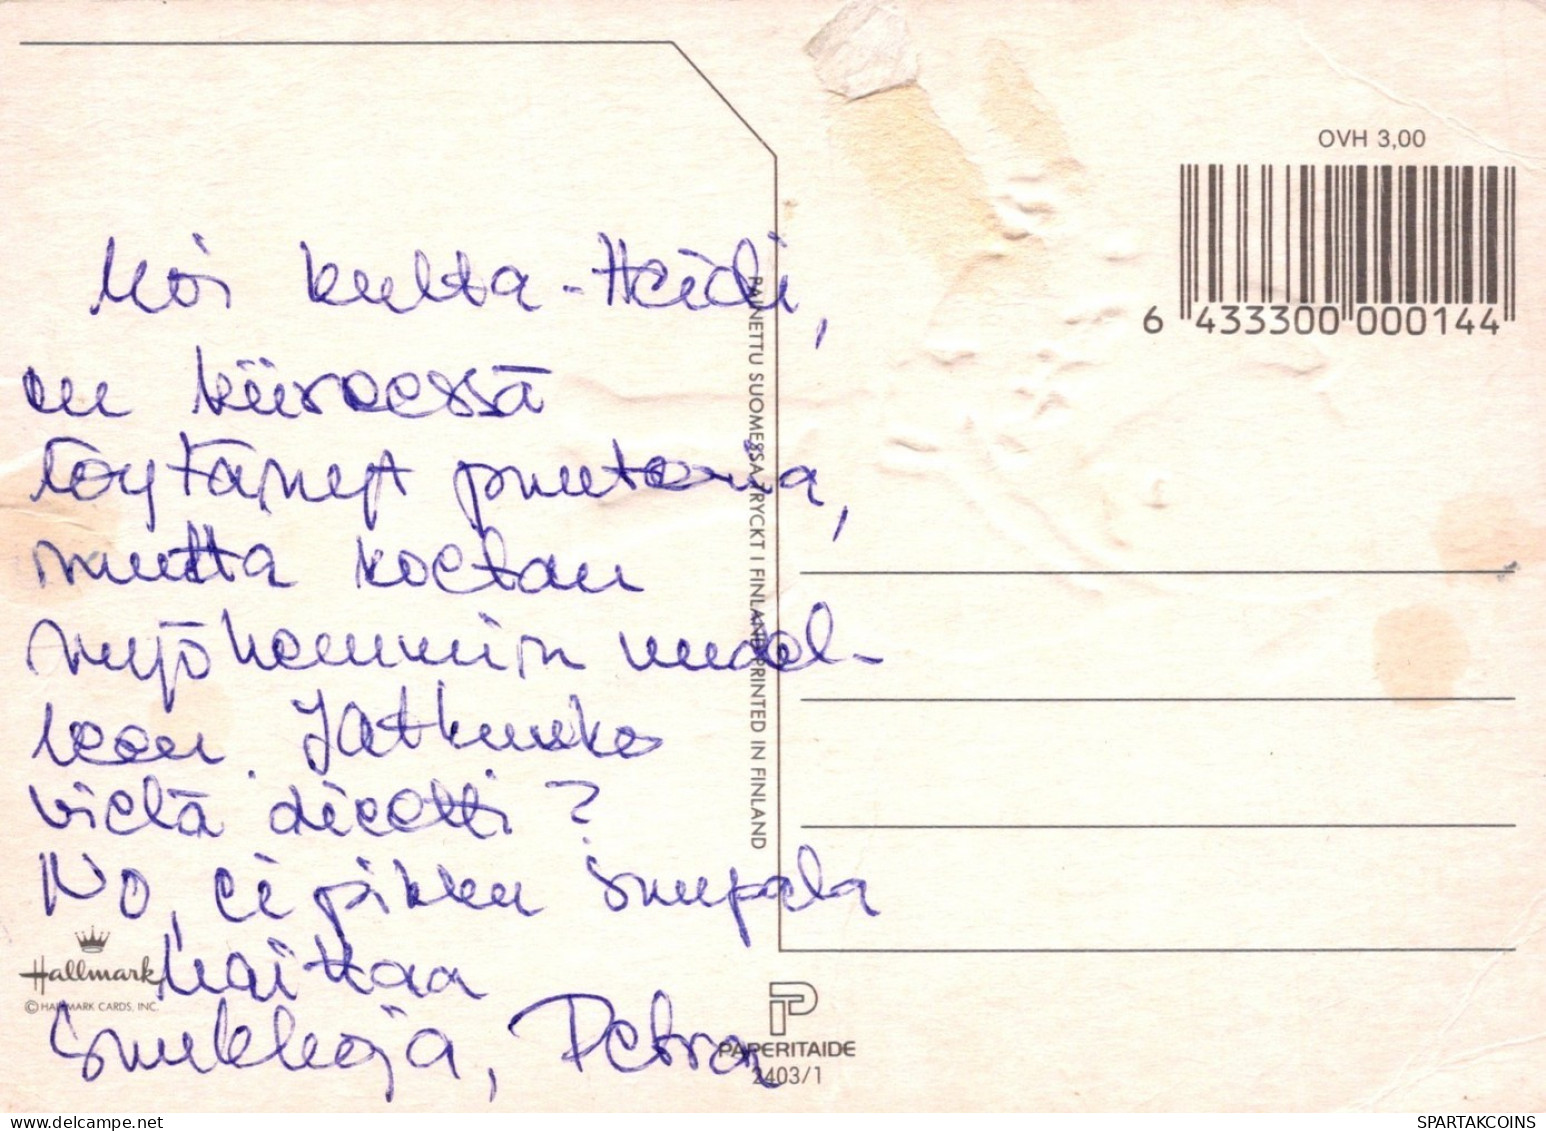 Moi kulta-Heidi,
en kiireessä
löytänyt puuteria,
mutta koetan
myöhemmin uudel-
leen. Jatkuuko
vielä dieetti?
No, ei pikku suupala
haittaa
Suukkoja, Petra
OVH 3,00
6 433300 000144
PAINETTU SUOMESSA TRYCKT I FINLAND PRINTED IN FINLAND
Hallmark
© HALLMARK CARDS, INC.
PAPERITAIDE
2403/1
SPARTAKCOINS
delcampe.net